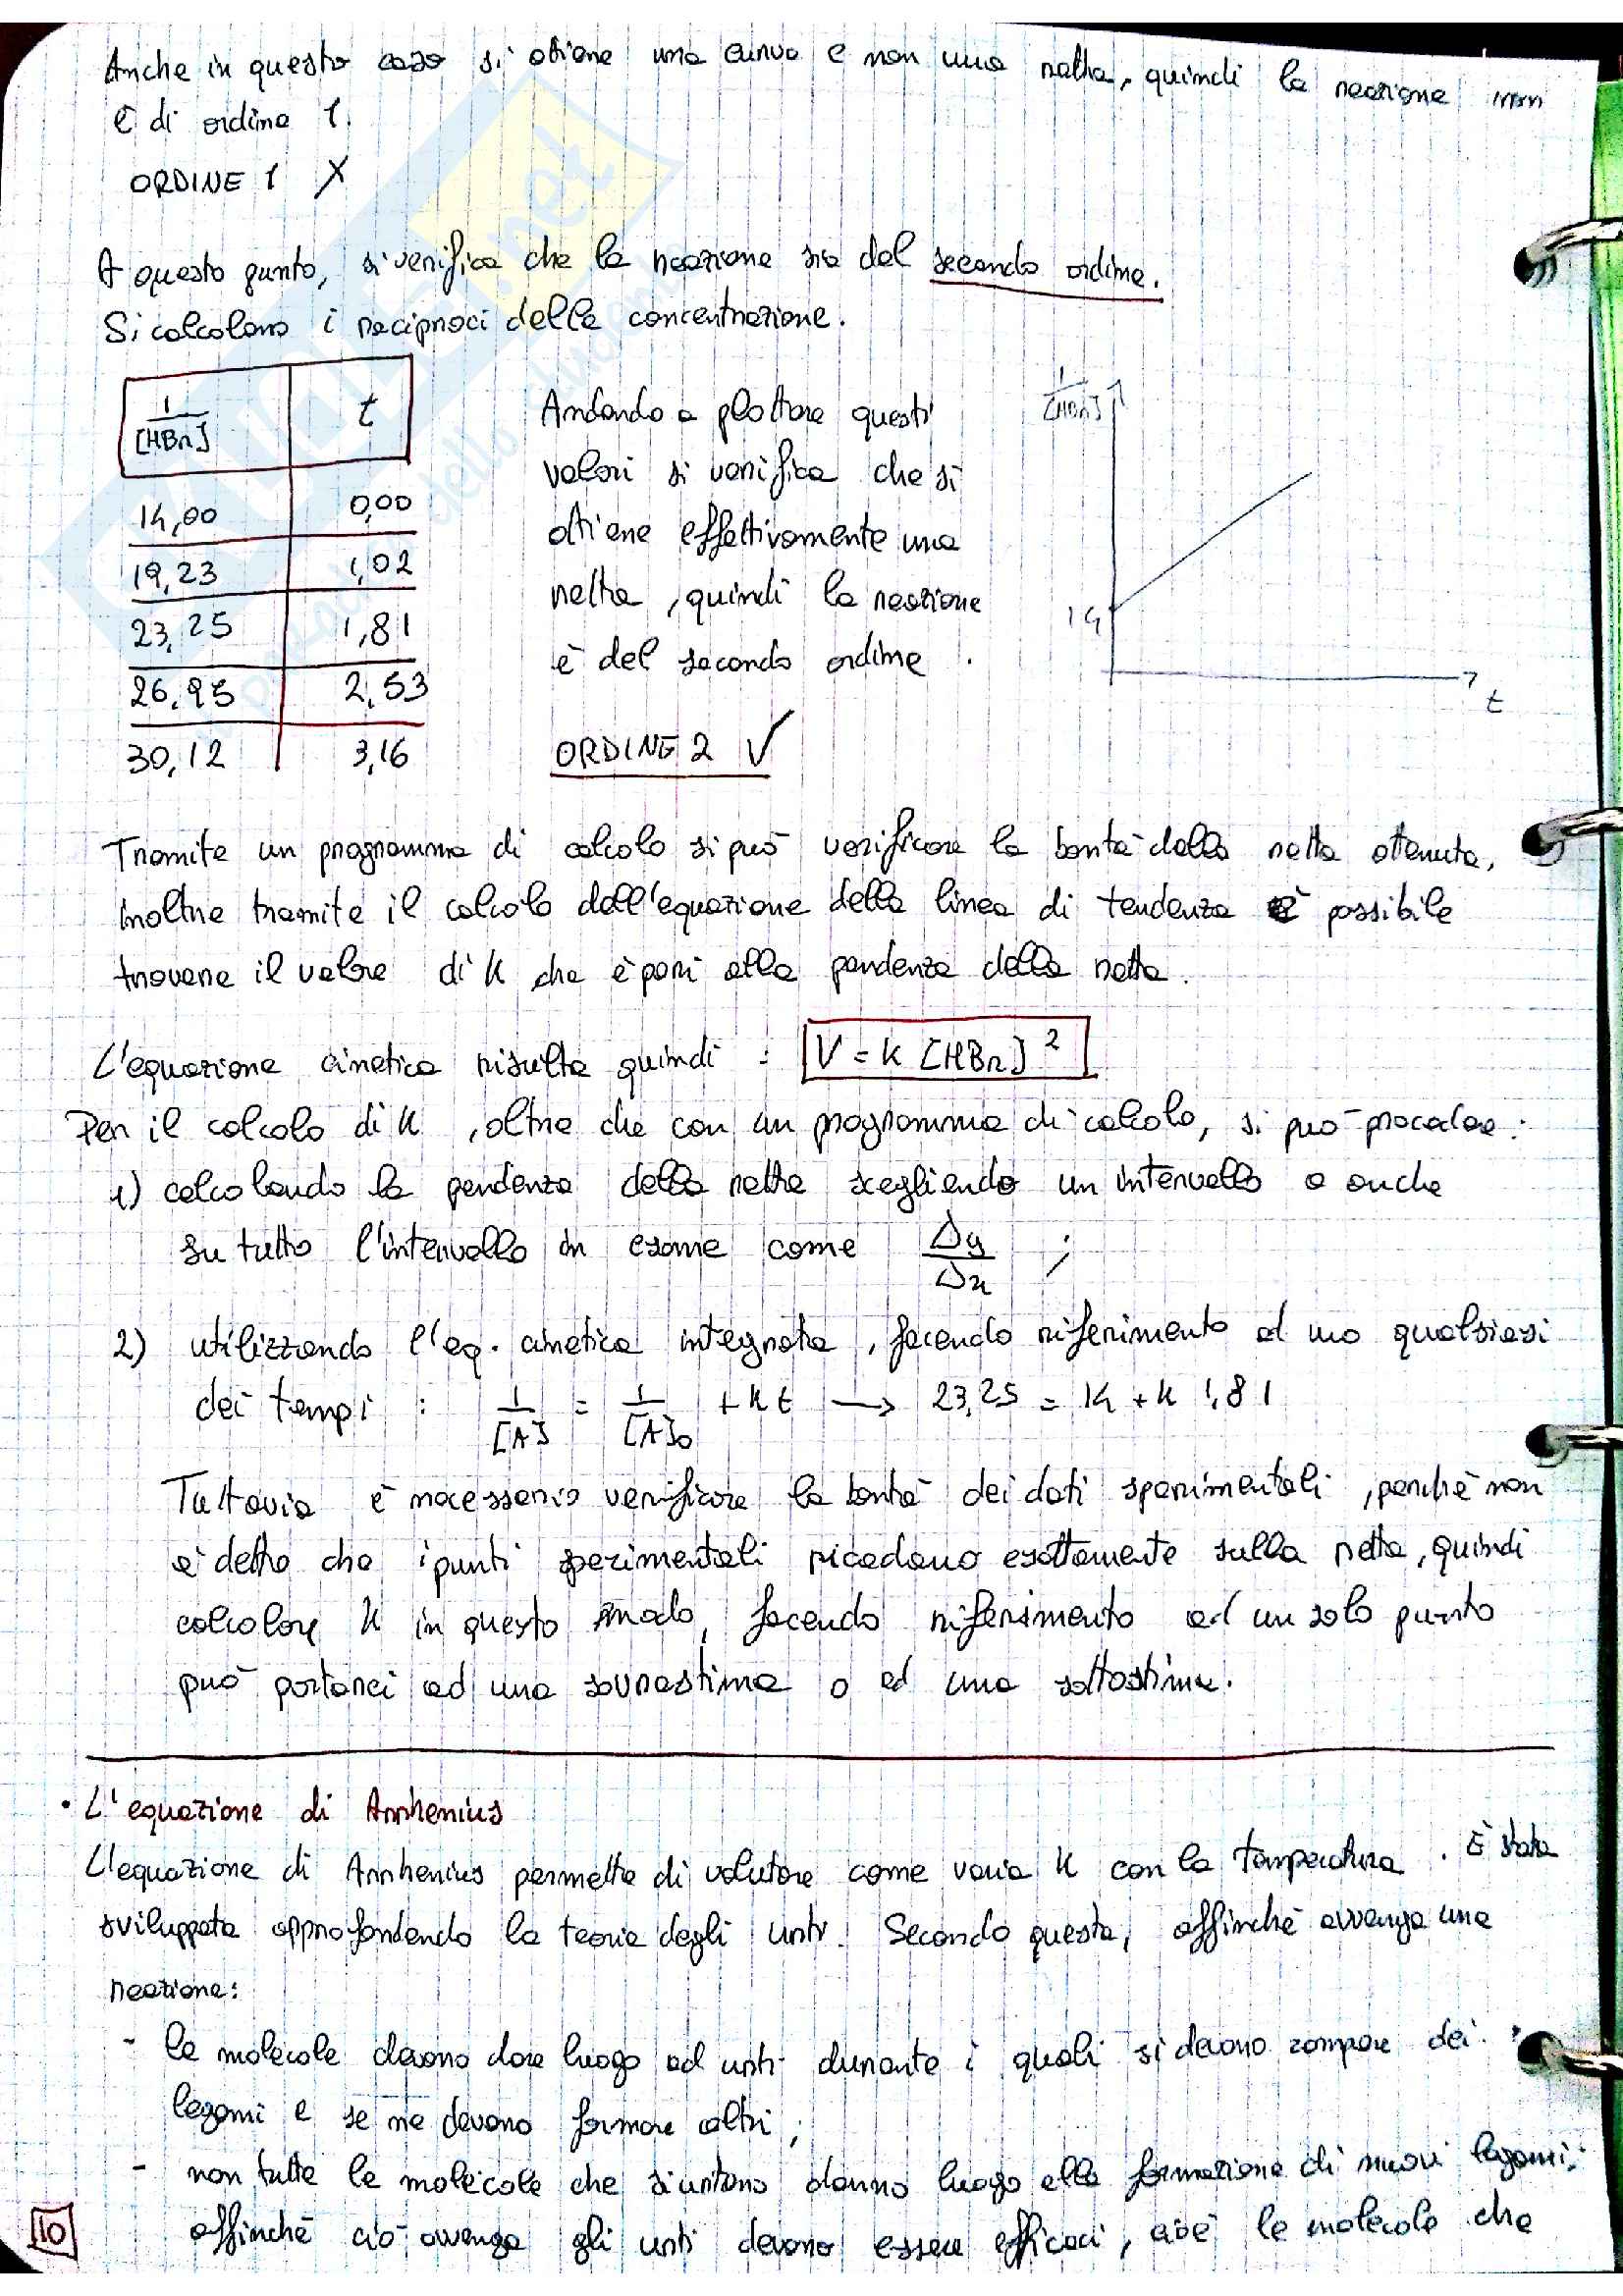 Anche in questo caso si ottiene una curva e non una retta, quindi la reazione non
è di ordine 1.
ORDINE 1 X
A questo punto, si verifica che la reazione sia del secondo ordine.
Si calcolano i reciproci della concentrazione.
1/[HBr] t
14,00 0,00
19,23 1,02
23,25 1,81
26,95 2,53
30,12 3,16
Andando a plottare questi
valori si verifica che si
ottiene effettivamente una
retta, quindi la reazione
è del secondo ordine.
ORDINE 2 √
1/[HBr]
14
t
Tramite un programma di calcolo si può verificare la bontà della retta ottenuta,
inoltre tramite il calcolo dell'equazione della linea di tendenza è possibile
trovare il valore di K che è pari alla pendenza della retta.
L'equazione cinetica risulta quindi : V = K [HBr]²
Per il calcolo di K, oltre che con un programma di calcolo, si può procedere:
1) calcolando la pendenza della retta scegliendo un intervallo o anche
su tutto l'intervallo in esame come Δy/Δx ;
2) utilizzando l'eq. cinetica integrata, facendo riferimento ad uno qualsiasi
dei tempi : 1/[A] = 1/[A]₀ + Kt → 23,25 = 14 + K 1,81
Tuttavia è necessario verificare la bontà dei dati sperimentali, perchè non
è detto che i punti sperimentali ricadano esattamente sulla retta, quindi
calcolare K in questo modo, facendo riferimento ad un solo punto
può portarci ad una sovrastima o ad una sottostima.
• L'equazione di Arrhenius
L'equazione di Arrhenius permette di valutare come varia K con la temperatura. È stata
sviluppata approfondendo la teoria degli urti. Secondo questa, affinchè avvenga una
reazione:
- le molecole devono dare luogo ad urti durante i quali si devono rompere dei
legami e se ne devono formare altri;
- non tutte le molecole che si urtano danno luogo alla formazione di nuovi legami;
affinchè ciò avvenga gli urti devono essere efficaci, cioè le molecole che
10